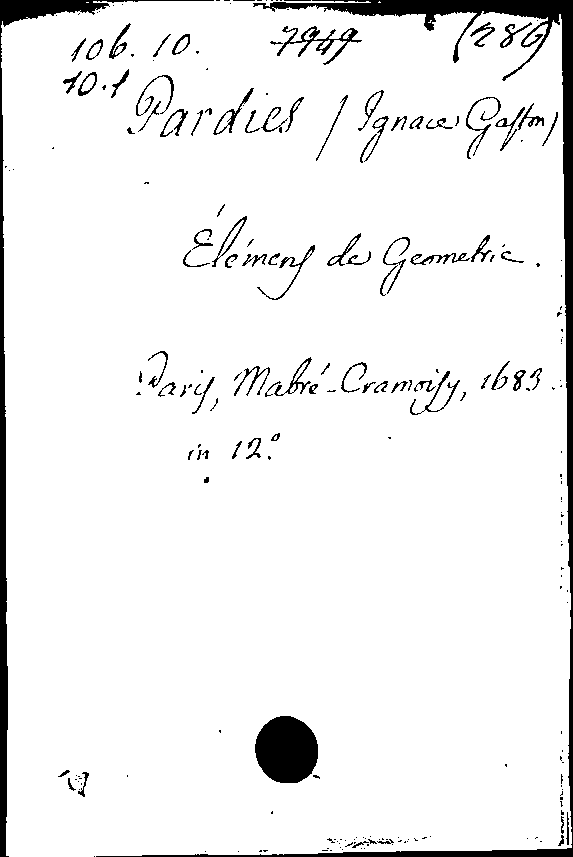 106. 10. 7949 (286)
10.1
Pardies / Ignace Gaston)
Élémens de Geometrie.
Paris, Mabré-Cramoisy, 1683.
in 12.º